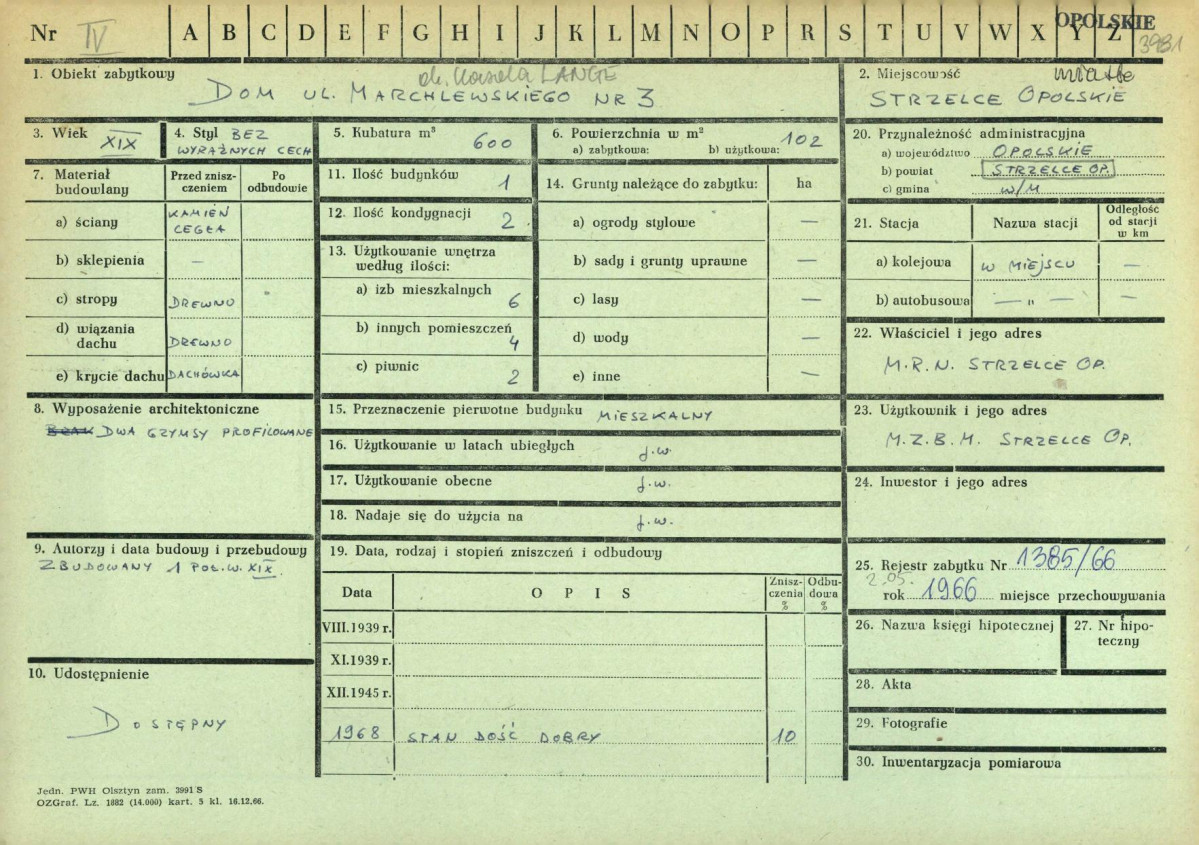 Nr IV A B C D E F G H I J K L M N O P R S T U V W X Y Z
OPOLSKIE
3981
1. Obiekt zabytkowy
LANGE
DOM UL. MARCHLEWSKIEGO NR 3
2. Miejscowość
miasto
STRZELCE OPOLSKIE
3. Wiek
XIX
4. Styl BEZ
WYRAŹNYCH CECH
5. Kubatura m³
600
6. Powierzchnia w m²
a) zabytkowa: b) użytkowa: 102
7. Materiał
budowlany
Przed znisz-
czeniem
Po
odbudowie
a) ściany
KAMIEŃ
CEGŁA
b) sklepienia —
c) stropy DREWNO
d) wiązania
dachu DREWNO
e) krycie dachu DACHÓWKA
8. Wyposażenie architektoniczne
BRAK DWA GZYMSY PROFILOWANE
9. Autorzy i data budowy i przebudowy
ZBUDOWANY 1 POŁ. W. XIX.
10. Udostępnienie
DOSTĘPNY
11. Ilość budynków 1
12. Ilość kondygnacji 2.
13. Użytkowanie wnętrza
według ilości:
a) izb mieszkalnych
6
b) innych pomieszczeń
4
c) piwnic
2
14. Grunty należące do zabytku: ha
a) ogrody stylowe —
b) sady i grunty uprawne —
c) lasy —
d) wody —
e) inne —
15. Przeznaczenie pierwotne budynku MIESZKALNY
16. Użytkowanie w latach ubiegłych j.w.
17. Użytkowanie obecne j.w.
18. Nadaje się do użycia na j.w.
19. Data, rodzaj i stopień zniszczeń i odbudowy
Data
O P I S
Znisz-
czenia
%
Odbu-
dowa
%
VIII.1939 r.
XI.1939 r.
XII.1945 r.
1968 STAN DOŚĆ DOBRY 10
20. Przynależność administracyjna
a) województwo OPOLSKIE
b) powiat STRZELCE OP.
c) gmina W/M
21. Stacja
Nazwa stacji
Odległość
od stacji
w km
a) kolejowa W MIEJSCU —
b) autobusowa — " — —
22. Właściciel i jego adres
M.R.N. STRZELCE OP.
23. Użytkownik i jego adres
M.Z.B.M. STRZELCE OP.
24. Inwestor i jego adres
25. Rejestr zabytku Nr 1385/66
2.05.
rok 1966 miejsce przechowywania
26. Nazwa księgi hipotecznej
27. Nr hipo-
teczny
28. Akta
29. Fotografie
30. Inwentaryzacja pomiarowa
Jedn. PWH Olsztyn zam. 3991 S
OZGraf. Lz. 1882 (14.000) kart. 5 kl. 16.12.66.